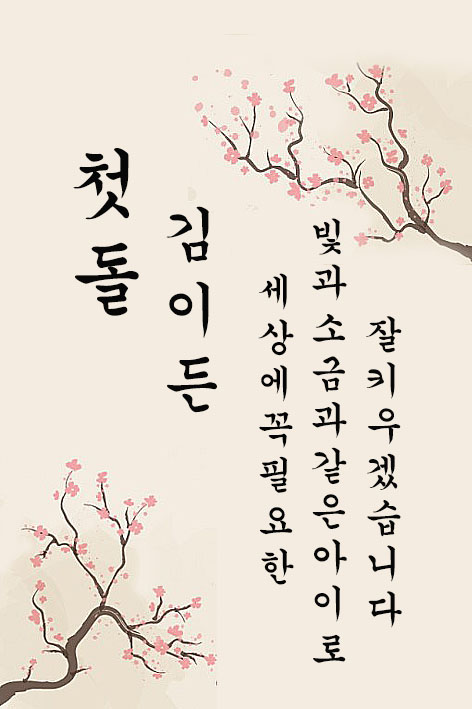 첫돌
김이든
세상에꼭필요한
빛과소금과같은아이로
잘키우겠습니다